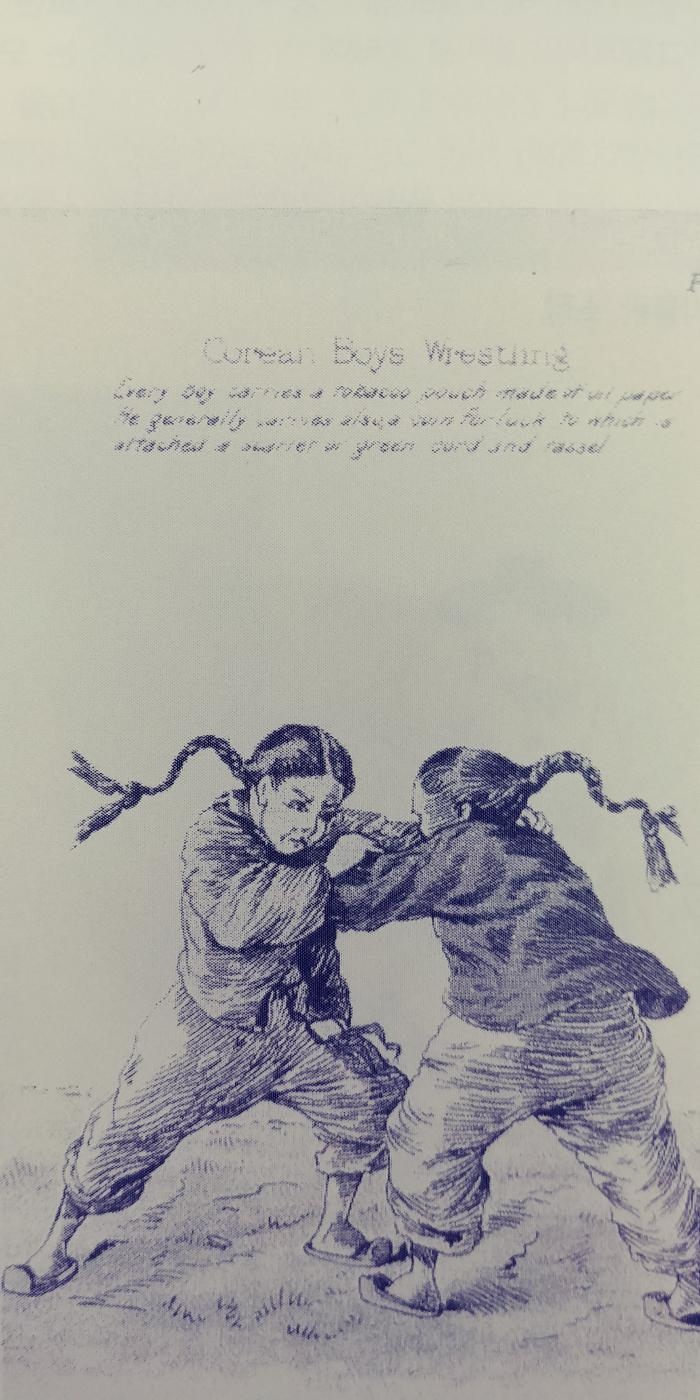 Corean Boys Wrestling
Every Boy carries a tobacco pouch made of oil paper
He generally carries also a coin for luck to which is
attached a scarlet or green cord and tassel